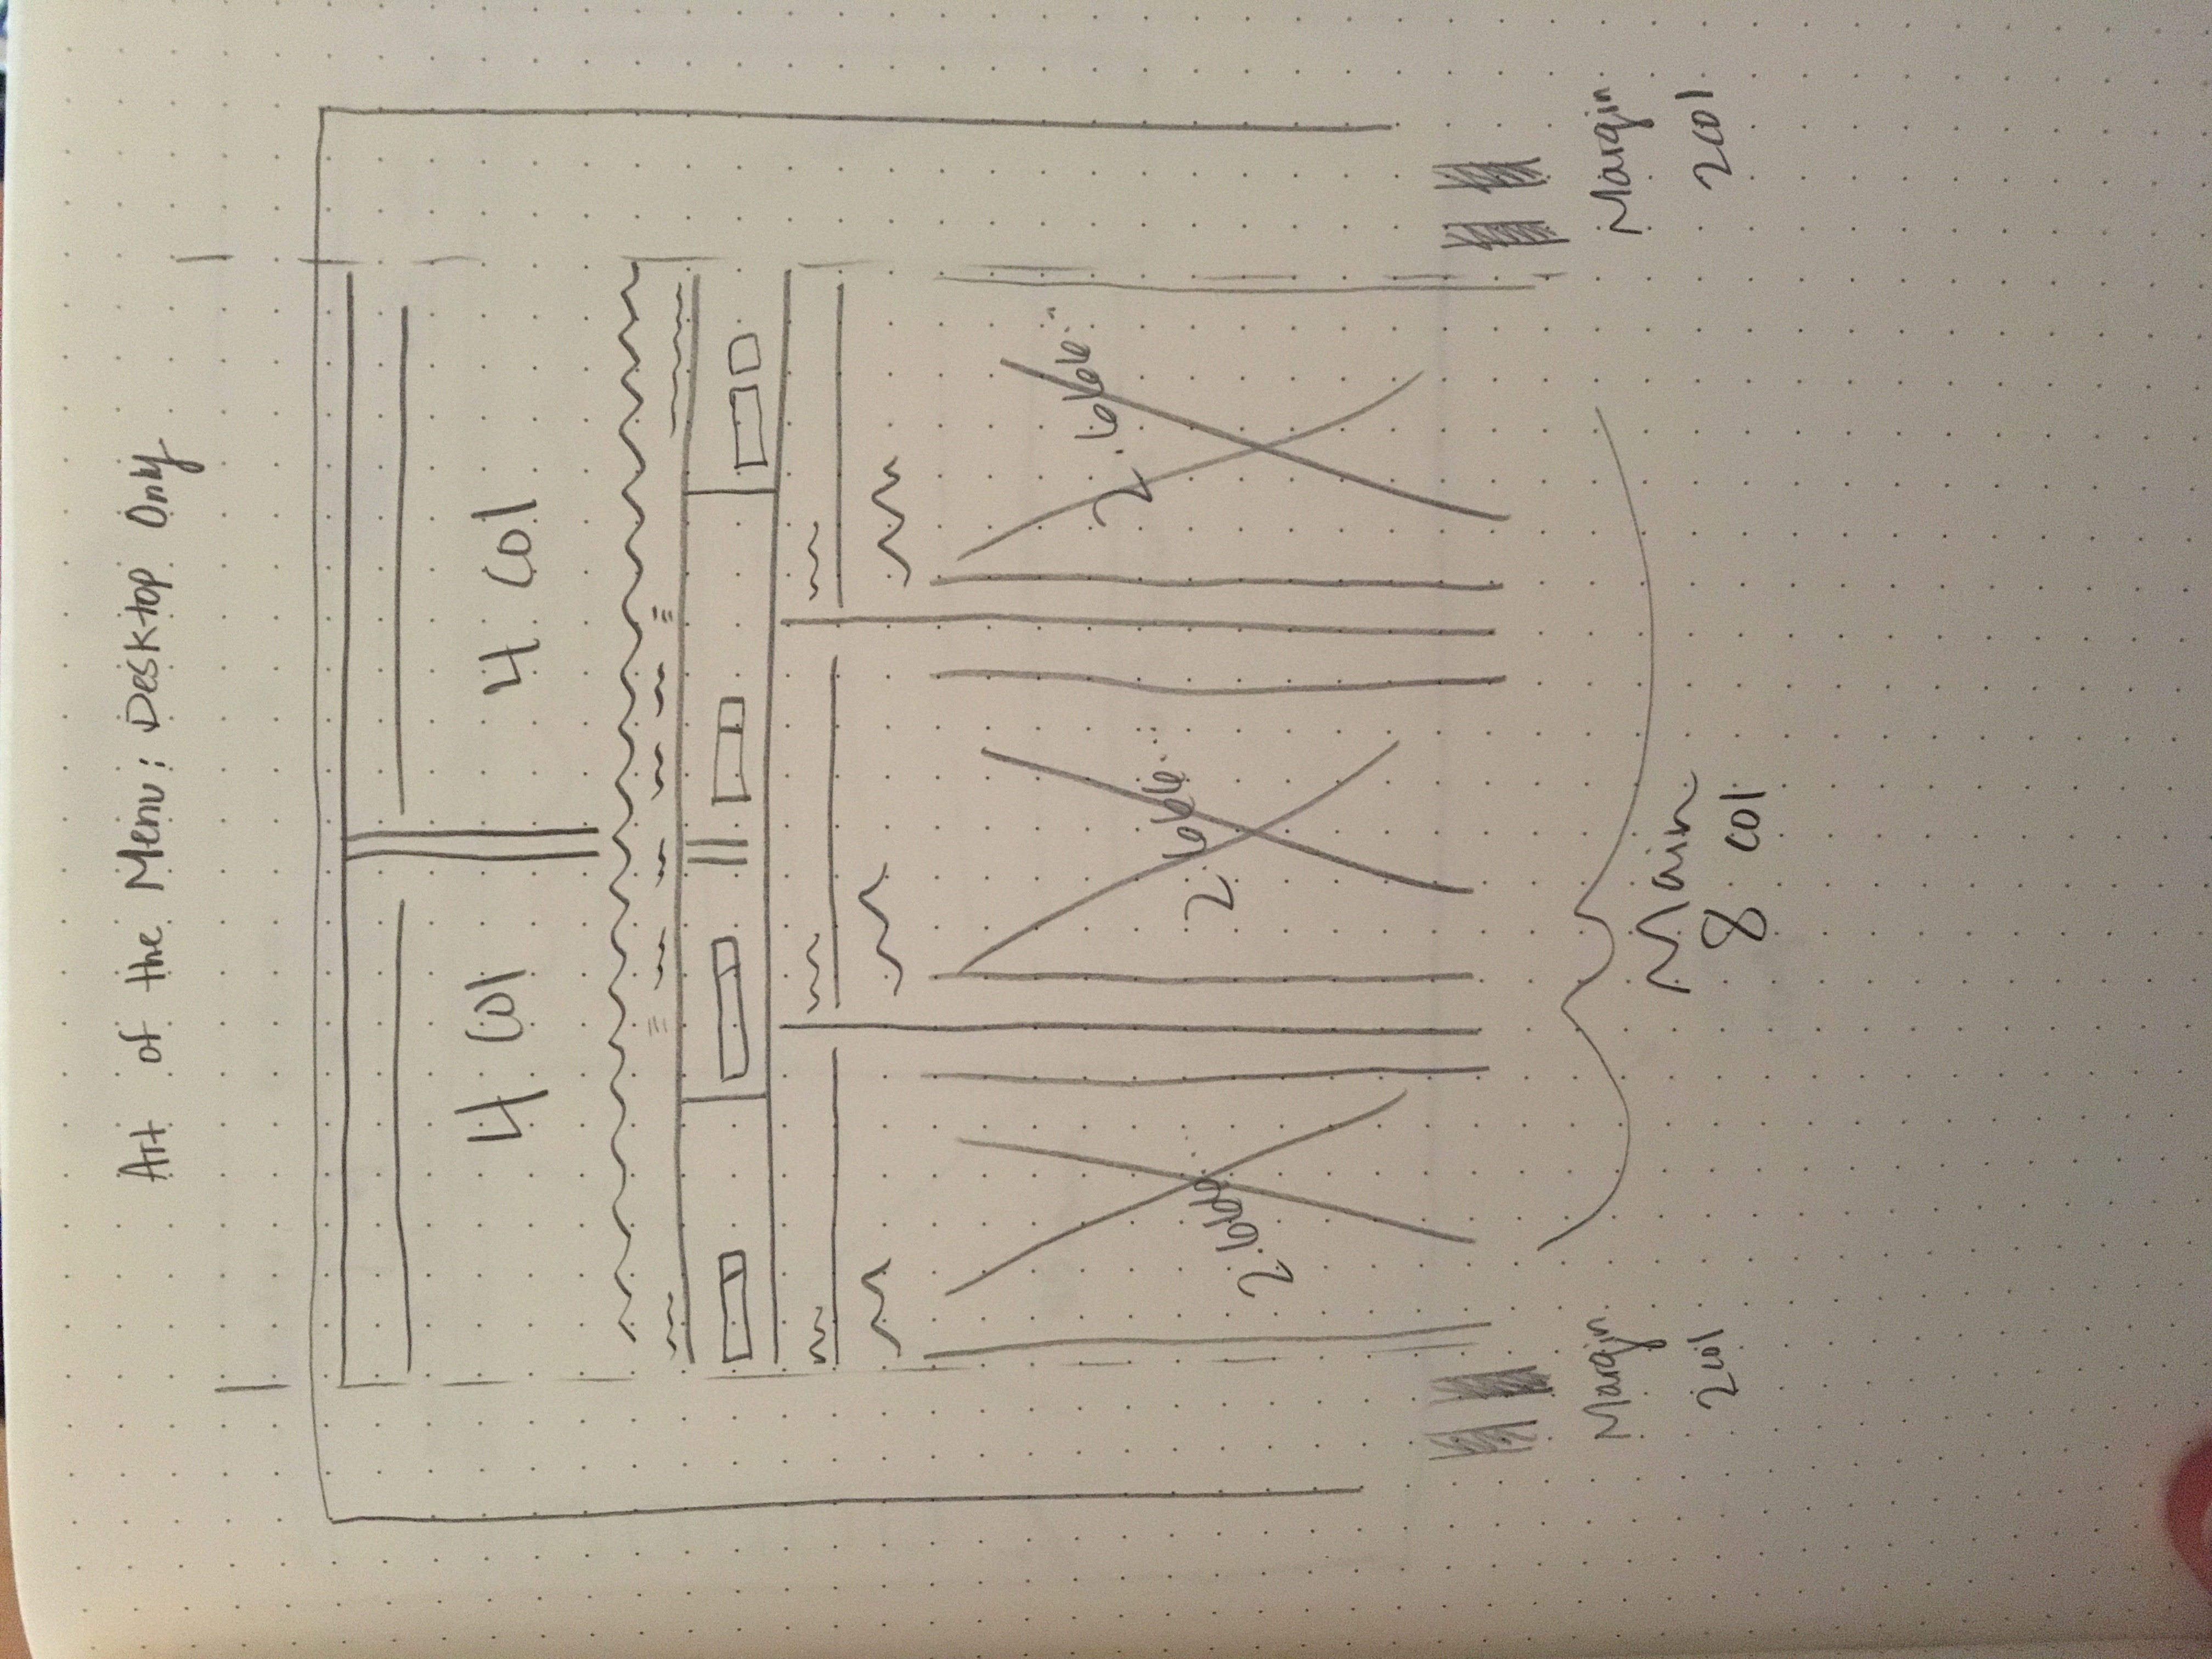 Art of the Menu: Desktop Only
4 col 4 col
2.666... 2.666... 2.666...
Margin Main Margin
2 col 8 col 2 col